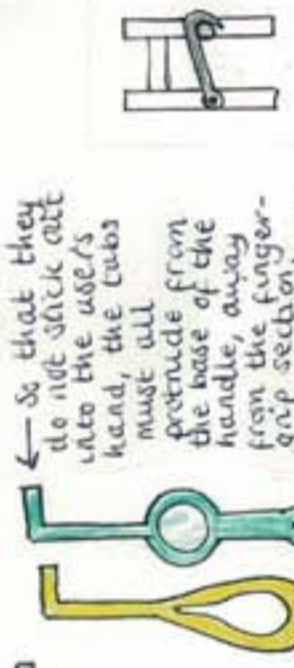 ← So that they
do not stick out
into the users
hand, the tabs
must all
protrude from
the base of the
handle, away
from the finger-
grip section.